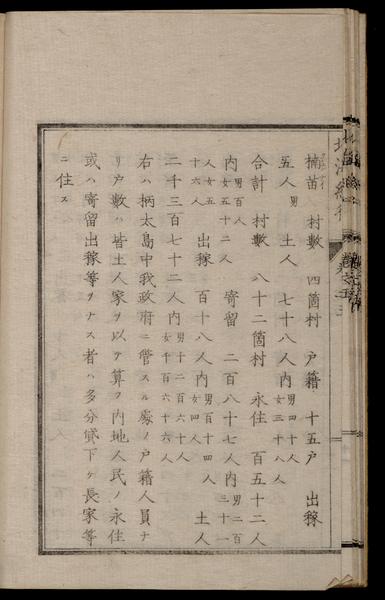 楠苗　村數　四箇村　戸籍　十五戸　出稼
五人男　土人　七十八人内男四十人女三十八人
合計　村數　八十二箇村　永住　百五十二人
内男百人女五十二人　寄留　二百八十七人内男二百三十一
人女五十六人　出稼　百十八人内男百十四人女四人　土人
二千三百七十二人内男千二百六十人女千百六十六人
右ハ柄太島中我政府ニ管スル處ノ戸籍人員ナ
リ戸數ハ皆土人家ヲ以テ算ヲ内地人民ノ永住
或ハ寄留出稼等ヲナス者ハ多分貸下ケ長家等
ニ住ス